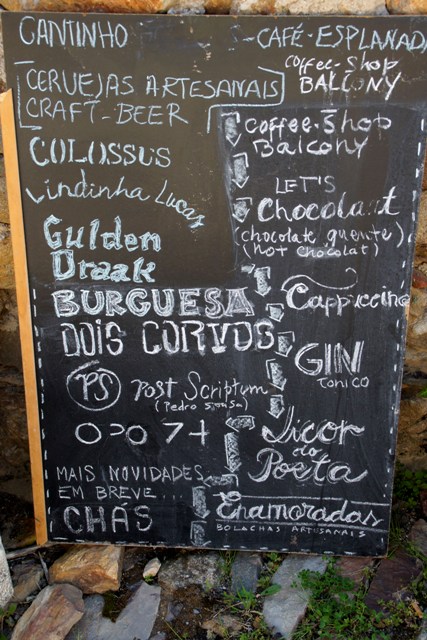 CANTINHO
CERVEJAS ARTESANAIS
CRAFT-BEER
COLOSSUS
Lindinha Lucas
Gulden
Draak
BURGUESA
DOIS CORVOS
PS Post Scriptum
(Pedro Sousa)
MAIS NOVIDADES
EM BREVE...
CHÁS
-CAFÉ-ESPLANADA
COFFEE-SHOP
BALCONY
COFFEE-Shop
Balcony
LET'S
Chocolat
(chocolate quente)
(HOT CHOCOLAT)
Cappuccino
GIN
TONICO
Licor
do
Poeta
Enamoradas
BOLACHAS ARTESANAIS